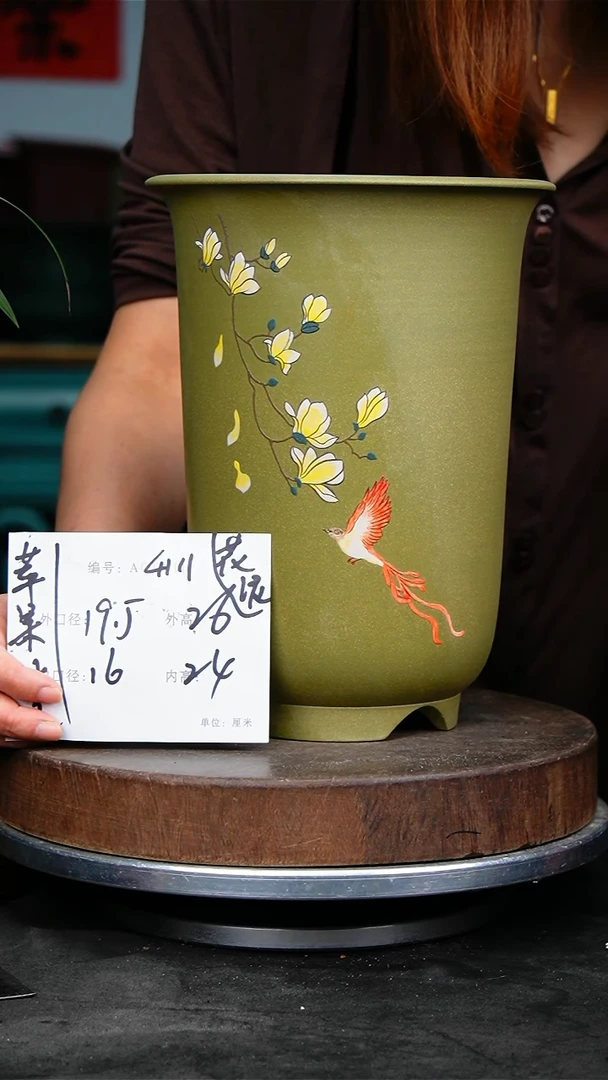 苹果
编号: A411
外口径: 19.5 外高 26
口径: 16 内高: 24
单位: 厘米